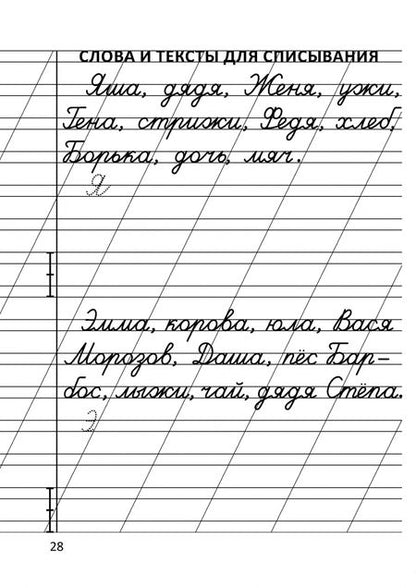 СЛОВА И ТЕКСТЫ ДЛЯ СПИСЫВАНИЯ
Яша, дядя, Женя, ужи,
Гена, стрижи, Федя, хлеб,
Борька, дочь, мяч.
Я
Эмма, корова, юла, Вася
Морозов, Даша, пёс Бар-
бос, лыжи, чай, дядя Стёпа.
Э
28